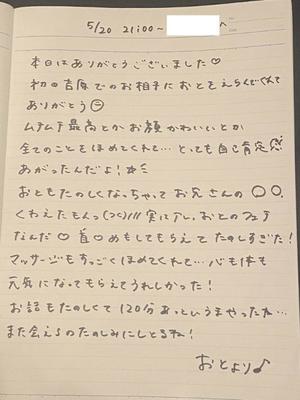 5/20 21:00~
本日はありがとうございました♡
初回吉原でのお相手におとをえらんでくれて
ありがとう☺
ムチムチ最高とかお顔かわいいとか
全てのことをほめてくれて…とっても自己肯定感
あがったんだよ!
おともたのしくなっちゃってお兄さんの〇〇、
くわえたもんっ(つく)///実は
なんだ♡首♡めもしてもらえてたのしすぎた!
マッサージもすっごくほめてくれて…心も体も
元気になってもらえてうれしかった!
お話もたのしくて120分あっというまやったね…
また会えるのたのしみにしとるね!
おとより♪